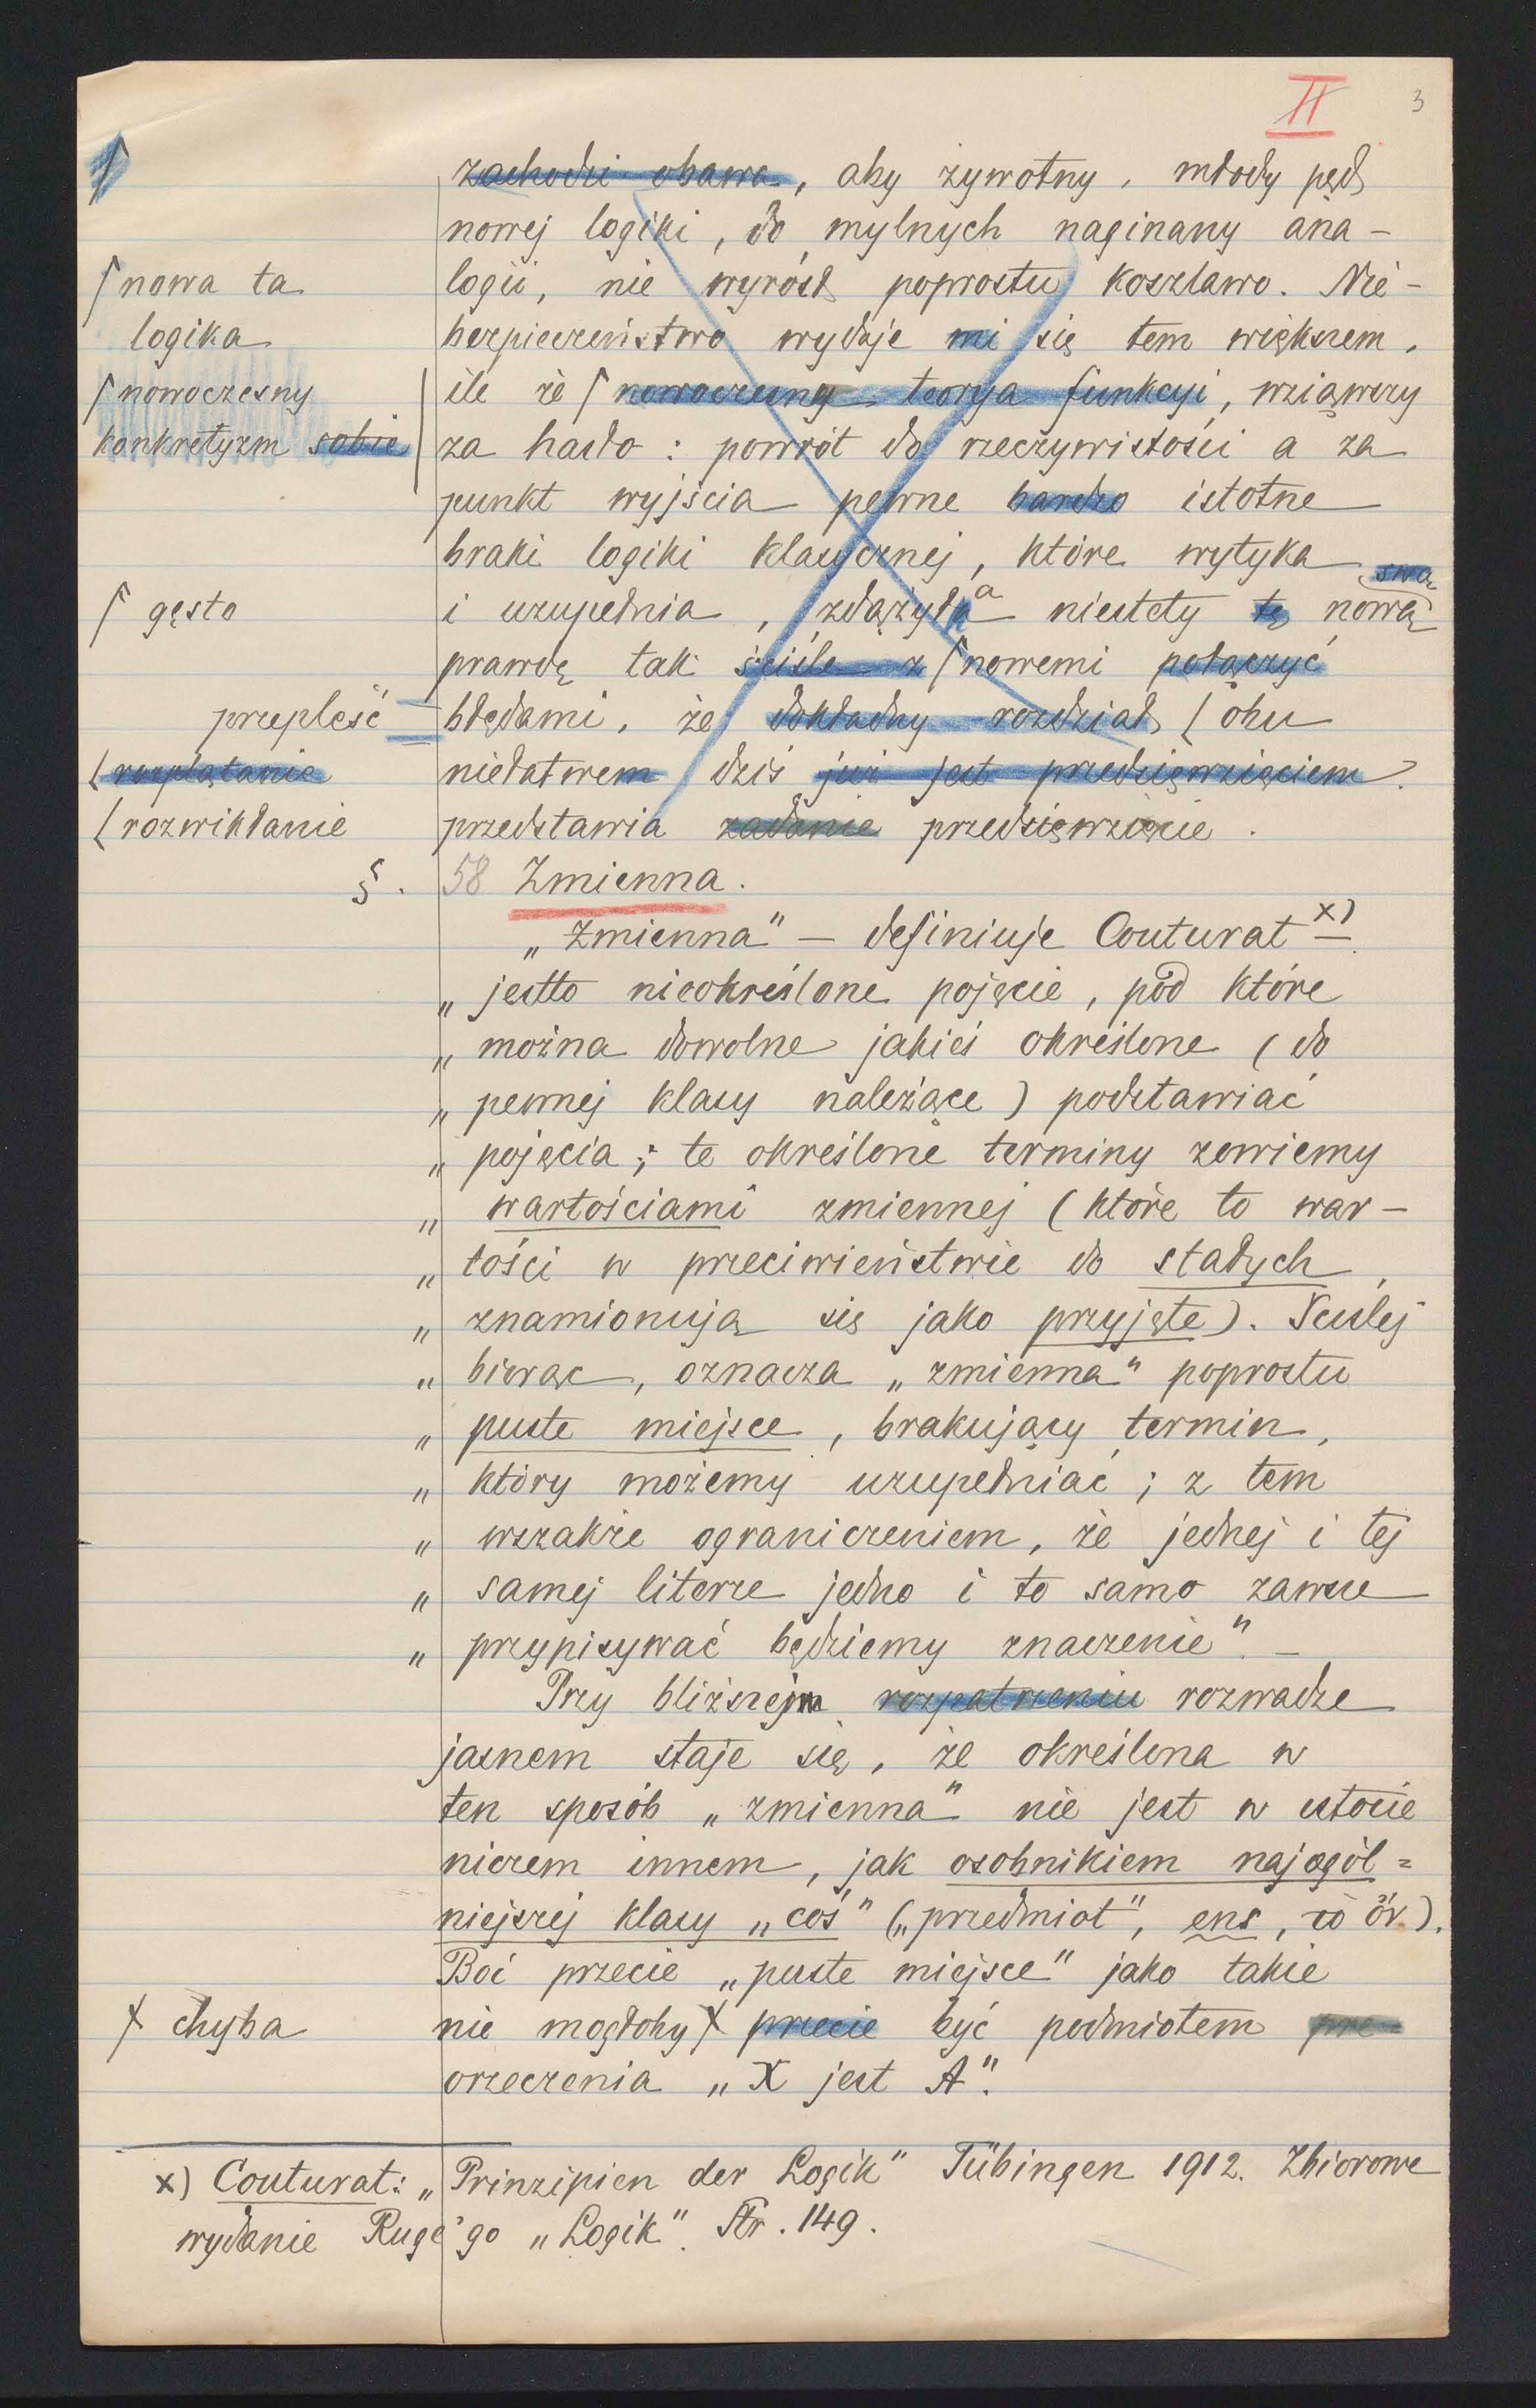 II 3
zachodzi obawa, aby żywotny, młody pęd
nowej logiki, do mylnych naginany ana-
⌈nowa ta
logika
logii, nie wyrósł poprostu koszlawo. Nie-
bezpieczeństwo wydaje mi się tem większem,
⌈nowoczesny
konkretyzm sobie
ile że ⌈nowoczesna teorya funkcyi, wziąwszy
za hasło: powrót do rzeczywistości a za
punkt wyjścia pewne bardzo istotne
braki logiki klasycznej, które wytyka
swą
⌈gęsto
i uzupełnia, zdążyła niestety tę nową
prawdę tak ściśle z ⌈nowemi połączyć
przepleść
błędami, że dokładny rozdział (obu
(rozplątanie
niełatwem dziś już jest przedsięwzięciem.
(rozwikłanie
przedstawia zadanie przedsięwzięcie.
§. 58 Zmienna.
„Zmienna" – definiuje Couturat x)
„jestto nieokreślone pojęcie, pod które
„można dowolne jakieś określone (do
„pewnej klasy należące) podstawiać
„pojęcia; te określone terminy zowiemy
„wartościami zmiennej (które to war-
„tości w przeciwieństwie do stałych,
„znamionują się jako przyjęte). Ściślej
„biorąc, oznacza „zmienna" poprostu
„puste miejsce, brakujący termin,
„który możemy uzupełniać; z tem
„wszakże ograniczeniem, że jednej i tej
„samej literze jedno i to samo zawsze
„przypisywać będziemy znaczenie". –
Przy bliższejm rozpatrzeniu rozwadze
jasnem staje się, że określona w
ten sposób „zmienna" nie jest w istocie
niczem innem, jak osobnikiem najogól=
niejszej klasy „coś" („przedmiot", ens, τὸ ὄν).
Boć przecie „puste miejsce" jako takie
x chyba
nie mogłoby x przecie być podmiotem prze-
orzeczenia „X jest A".
x) Couturat: „Prinzipien der Logik" Tübingen 1912. Zbiorowe
wydanie Ruge'go „Logik". Str. 149.